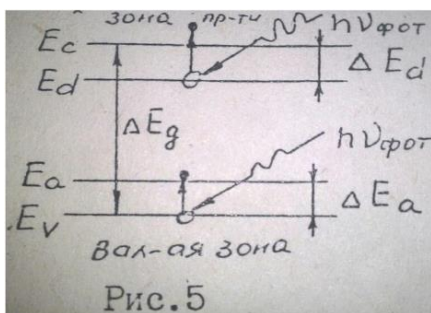 зона пр-ти hνфот
Ec
ΔEd
Ed
ΔEg
hνфот
Ea
ΔEa
Ev
Вал-ая зона
Рис.5